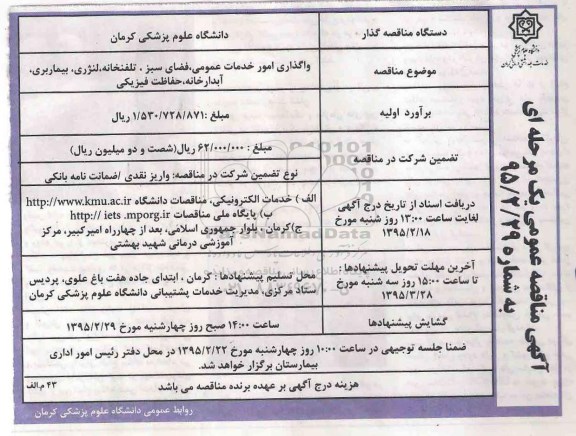 آگهی مناقصه عمومی یک مرحله ای
به شماره ۹۵/۲/۲۹
دستگاه مناقصه گذار
دانشگاه علوم پزشکی کرمان
موضوع مناقصه
واگذاری امور خدمات عمومی،فضای سبز ، تلفنخانه،لنژری، بیماربری،
آبدارخانه،حفاظت فیزیکی
برآورد اولیه
مبلغ :۱/۵۳۰/۷۲۸/۸۷۱ ریال
تضمین شرکت در مناقصه
مبلغ : ۶۲/۰۰۰/۰۰۰ ریال(شصت و دو میلیون ریال)
نوع تضمین شرکت در مناقصه: واریز نقدی /ضمانت نامه بانکی
دریافت اسناد از تاریخ درج آگهی
لغایت ساعت ۱۳:۰۰ روز شنبه مورخ
۱۳۹۵/۲/۱۸
الف ) خدمات الکترونیکی، مناقصات دانشگاه http://www.kmu.ac.ir
ب) پایگاه ملی مناقصات http:// iets .mporg.ir
ج)کرمان ، بلوار جمهوری اسلامی، بعد از چهارراه امیرکبیر، مرکز
آموزشی درمانی شهید بهشتی
آخرین مهلت تحویل پیشنهادها :
تا ساعت ۱۵:۰۰ روز سه شنبه مورخ
۱۳۹۵/۲/۲۸
محل تسلیم پیشنهادها : کرمان ، ابتدای جاده هفت باغ علوی، پردیس
ستاد مرکزی، مدیریت خدمات پشتیبانی دانشگاه علوم پزشکی کرمان
گشایش پیشنهادها
ساعت ۱۴:۰۰ صبح روز چهارشنبه مورخ ۱۳۹۵/۲/۲۹
ضمنا جلسه توجیهی در ساعت ۱۰:۰۰ روز چهارشنبه مورخ ۱۳۹۵/۲/۲۲ در محل دفتر رئیس امور اداری
بیمارستان برگزار خواهد شد.
هزینه درج آگهی بر عهده برنده مناقصه می باشد
۴۳ م.الف
روابط عمومی دانشگاه علوم پزشکی کرمان